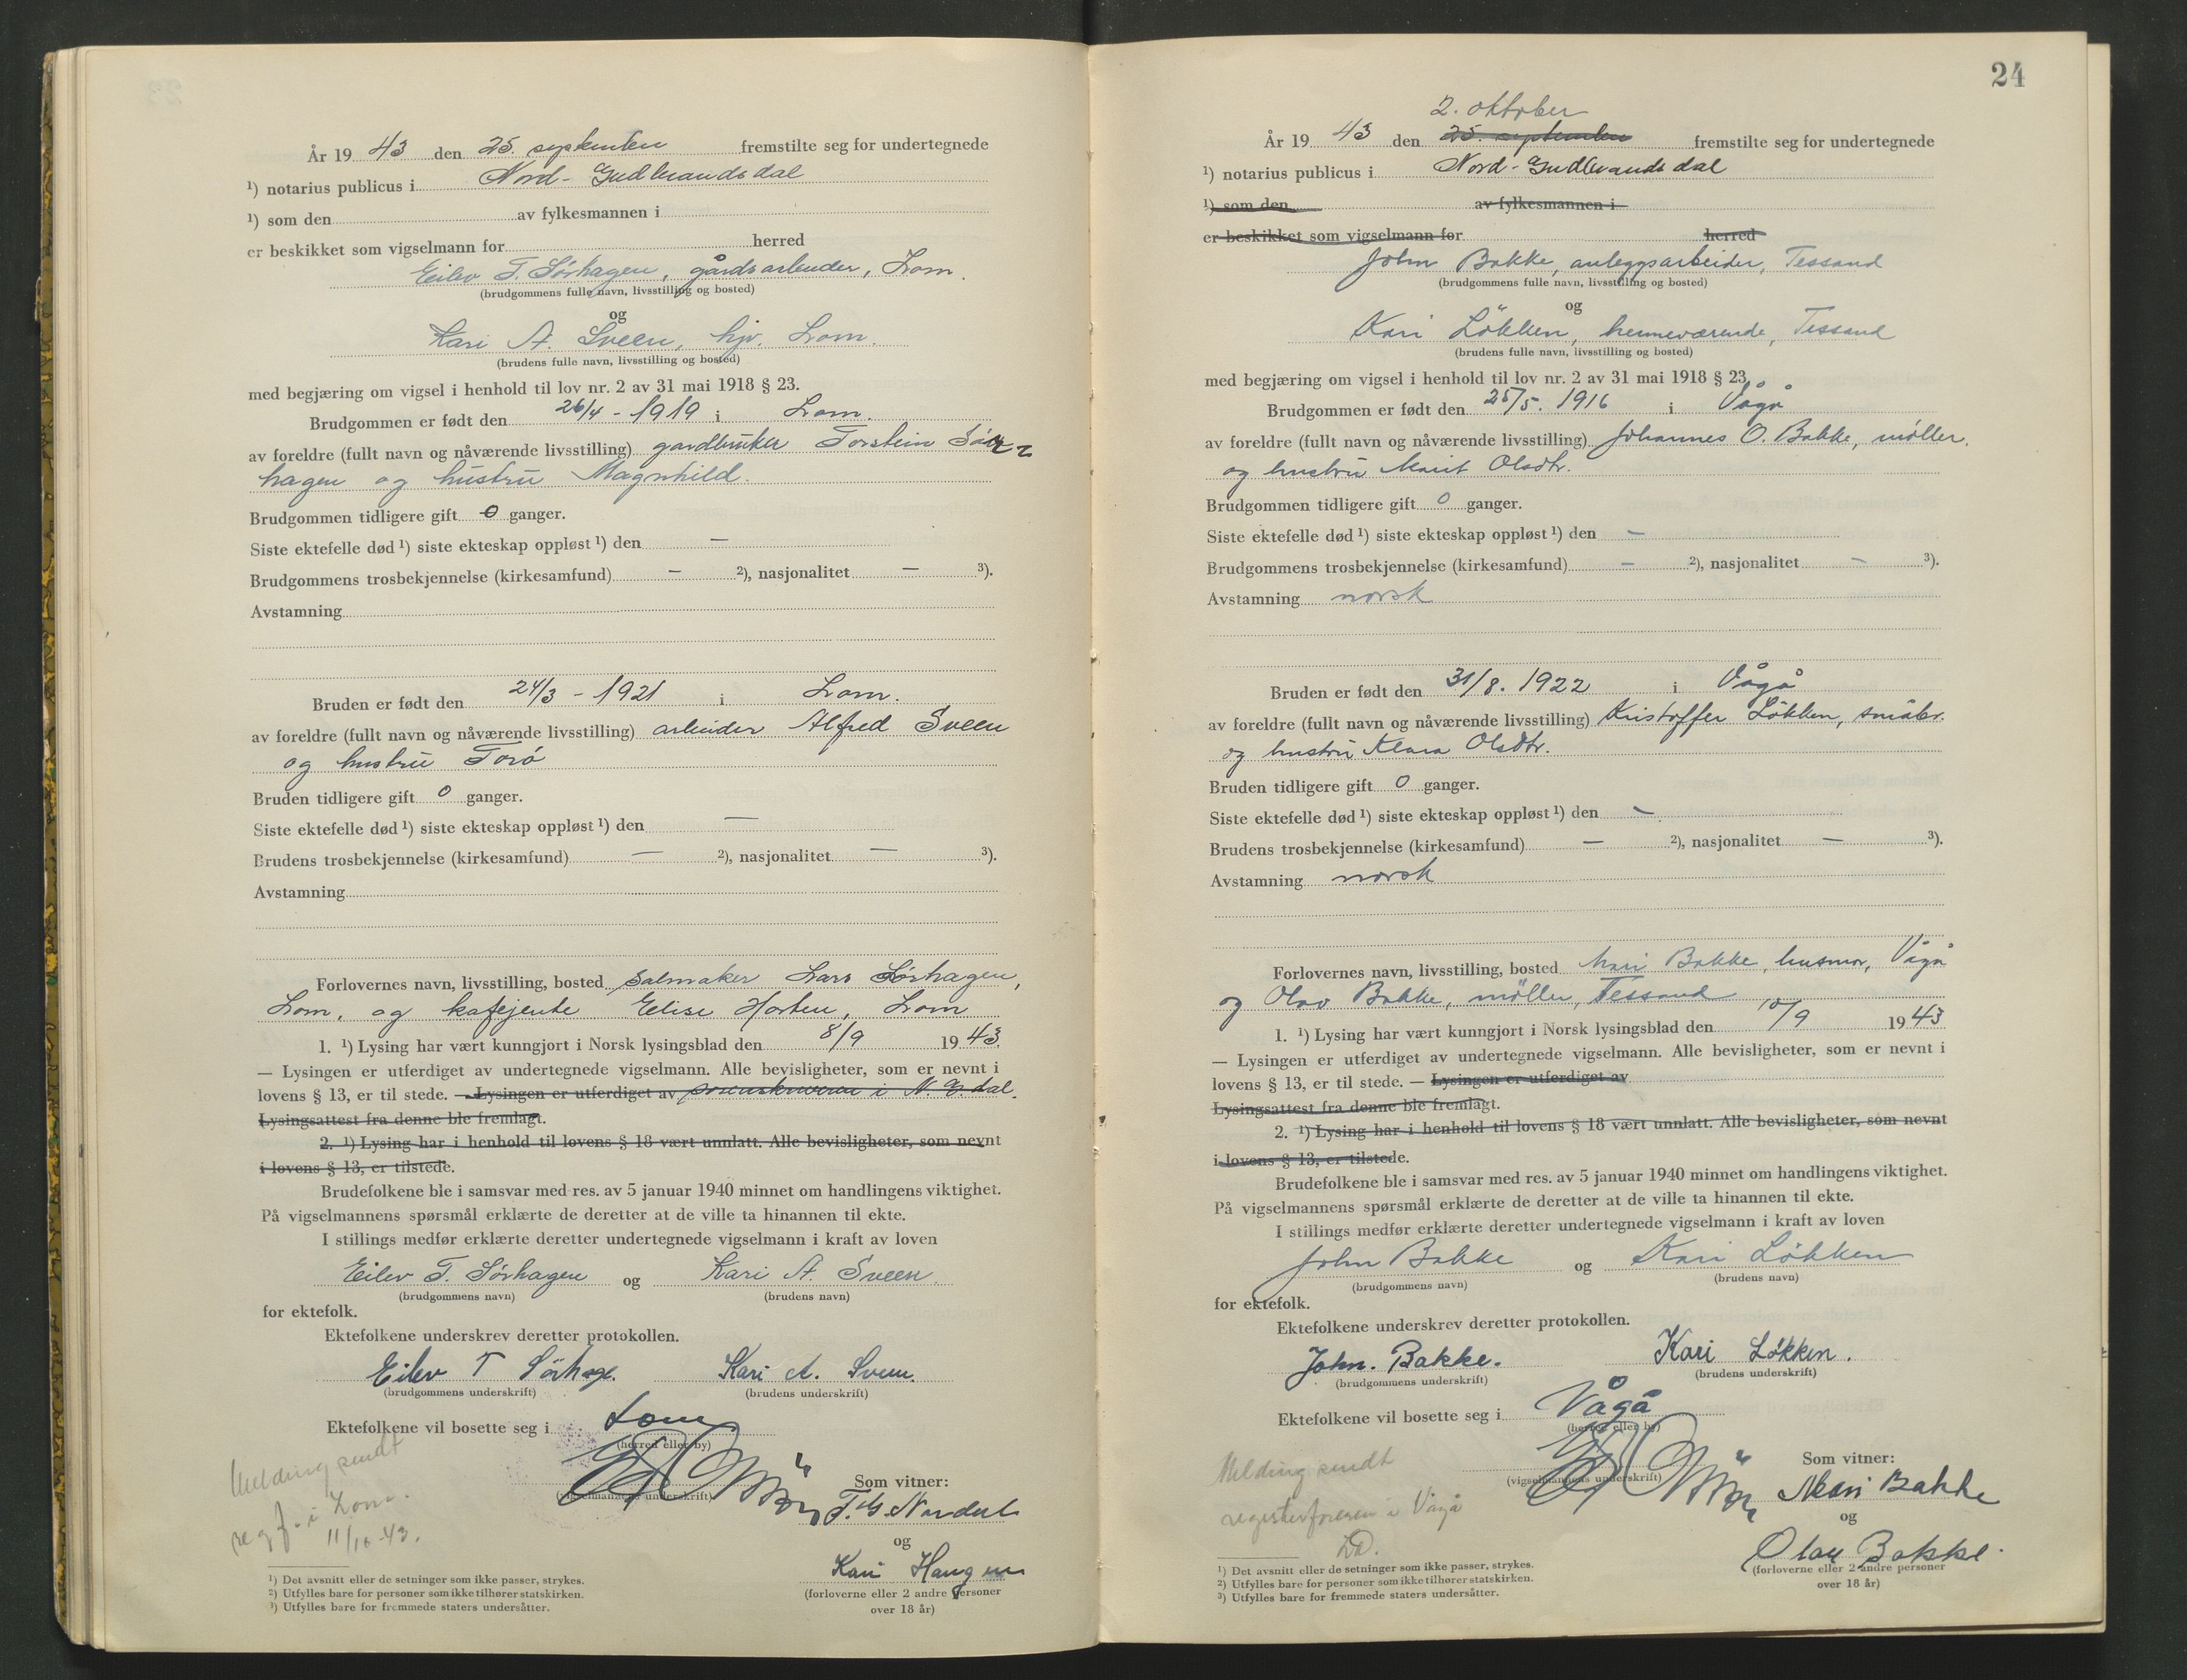 År 19 43 den 25. september fremstilte seg for undertegnede
¹) notarius publicus i Nord-Gudbrandsdal
¹) som den av fylkesmannen i
er beskikket som vigselmann for herred
Eilev T. Sörhagen, gårdsarbeider, Lom.
(brudgommens fulle navn, livsstilling og bosted)
og
Kari A. Sveen, hjv. Lom.
(brudens fulle navn, livsstilling og bosted)
med begjæring om vigsel i henhold til lov nr. 2 av 31 mai 1918 § 23.
Brudgommen er født den 26/4 - 1919 i Lom.
av foreldre (fullt navn og nåværende livsstilling) gardbruker Torstein Sör-
hagen og hustru Magnhild.
Brudgommen tidligere gift 0 ganger.
Siste ektefelle død ¹) siste ekteskap oppløst ¹) den —
Brudgommens trosbekjennelse (kirkesamfund) — ²), nasjonalitet — ³).
Avstamning
Bruden er født den 24/3 - 1921 i Lom.
av foreldre (fullt navn og nåværende livsstilling) arbeider Alfred Sveen
og hustru Toró
Bruden tidligere gift 0 ganger.
Siste ektefelle død ¹) siste ekteskap oppløst ¹) den —
Brudens trosbekjennelse (kirkesamfund) — ²), nasjonalitet — ³).
Avstamning
Forlovernes navn, livsstilling, bosted Salmaker Lars Sörhagen,
Lom, og kafejente Elise Horten, Lom
1. ¹) Lysing har vært kunngjort i Norsk lysingsblad den 8/9 19 43.
— Lysingen er utferdiget av undertegnede vigselmann. Alle bevisligheter, som er nevnt i
lovens § 13, er til stede. — Lysingen er utferdiget av sorenskriveren i N. G.dal.
Lysingsattest fra denne ble fremlagt.
2. ¹) Lysing har i henhold til lovens § 18 vært unnlatt. Alle bevisligheter, som nevnt
i lovens § 13, er tilstede.
Brudefolkene ble i samsvar med res. av 5 januar 1940 minnet om handlingens viktighet.
På vigselmannens spørsmål erklærte de deretter at de ville ta hinannen til ekte.
I stillings medfør erklærte deretter undertegnede vigselmann i kraft av loven
Eilev T. Sörhagen og Kari A. Sveen
(brudgommens navn) (brudens navn)
for ektefolk.
Ektefolkene underskrev deretter protokollen.
Eilev T Sörhage. Kari A. Sveen.
(brudgommens underskrift) (brudens underskrift)
Ektefolkene vil bosette seg i Lom
(herred eller by)
(vigselmannens underskrift)
Melding sendt
reg.f. i Lom.
11/10-43.
Som vitner:
Nordal
og
Kari Haugen
(forloverne eller 2 andre personer
over 18 år)
¹) Det avsnitt eller de setninger som ikke passer, strykes.
²) Utfylles bare for personer som ikke tilhører statskirken.
³) Utfylles bare for fremmede staters undersåtter.
24
2. oktober
År 19 43 den 25. september fremstilte seg for undertegnede
¹) notarius publicus i Nord-Gudbrandsdal
¹) som den av fylkesmannen i
er beskikket som vigselmann for herred
John Bakke, anleggsarbeider, Tessand
(brudgommens fulle navn, livsstilling og bosted)
og
Kari Lökken, hjemmeværende, Tessand
(brudens fulle navn, livsstilling og bosted)
med begjæring om vigsel i henhold til lov nr. 2 av 31 mai 1918 § 23.
Brudgommen er født den 25/5. 1916 i Vågå
av foreldre (fullt navn og nåværende livsstilling) Johannes O. Bakke, møller.
og hustru Marit Olsdtr.
Brudgommen tidligere gift 0 ganger.
Siste ektefelle død ¹) siste ekteskap oppløst ¹) den —
Brudgommens trosbekjennelse (kirkesamfund) — ²), nasjonalitet — ³).
Avstamning norsk
Bruden er født den 31/8. 1922 i Vågå
av foreldre (fullt navn og nåværende livsstilling) Kristoffer Lökken, småbr.
og hustru Klara Olsdtr.
Bruden tidligere gift 0 ganger.
Siste ektefelle død ¹) siste ekteskap oppløst ¹) den —
Brudens trosbekjennelse (kirkesamfund) — ²), nasjonalitet — ³).
Avstamning norsk
Forlovernes navn, livsstilling, bosted Mari Bakke, husmor, Vågå
og Olav Bakke, møller, Tessand
1. ¹) Lysing har vært kunngjort i Norsk lysingsblad den 10/9 19 43
— Lysingen er utferdiget av undertegnede vigselmann. Alle bevisligheter, som er nevnt i
lovens § 13, er til stede. — Lysingen er utferdiget av
Lysingsattest fra denne ble fremlagt.
2. ¹) Lysing har i henhold til lovens § 18 vært unnlatt. Alle bevisligheter, som nevnt
i lovens § 13, er tilstede.
Brudefolkene ble i samsvar med res. av 5 januar 1940 minnet om handlingens viktighet.
På vigselmannens spørsmål erklærte de deretter at de ville ta hinannen til ekte.
I stillings medfør erklærte deretter undertegnede vigselmann i kraft av loven
John Bakke og Kari Lökken
(brudgommens navn) (brudens navn)
for ektefolk.
Ektefolkene underskrev deretter protokollen.
John. Bakke. Kari Løkken.
(brudgommens underskrift) (brudens underskrift)
Ektefolkene vil bosette seg i Vågå
(herred eller by)
(vigselmannens underskrift)
Melding sendt
registerføreren i Vågå
Som vitner:
Mari Bakke
og
Olav Bakke.
(forloverne eller 2 andre personer
over 18 år)
¹) Det avsnitt eller de setninger som ikke passer, strykes.
²) Utfylles bare for personer som ikke tilhører statskirken.
³) Utfylles bare for fremmede staters undersåtter.